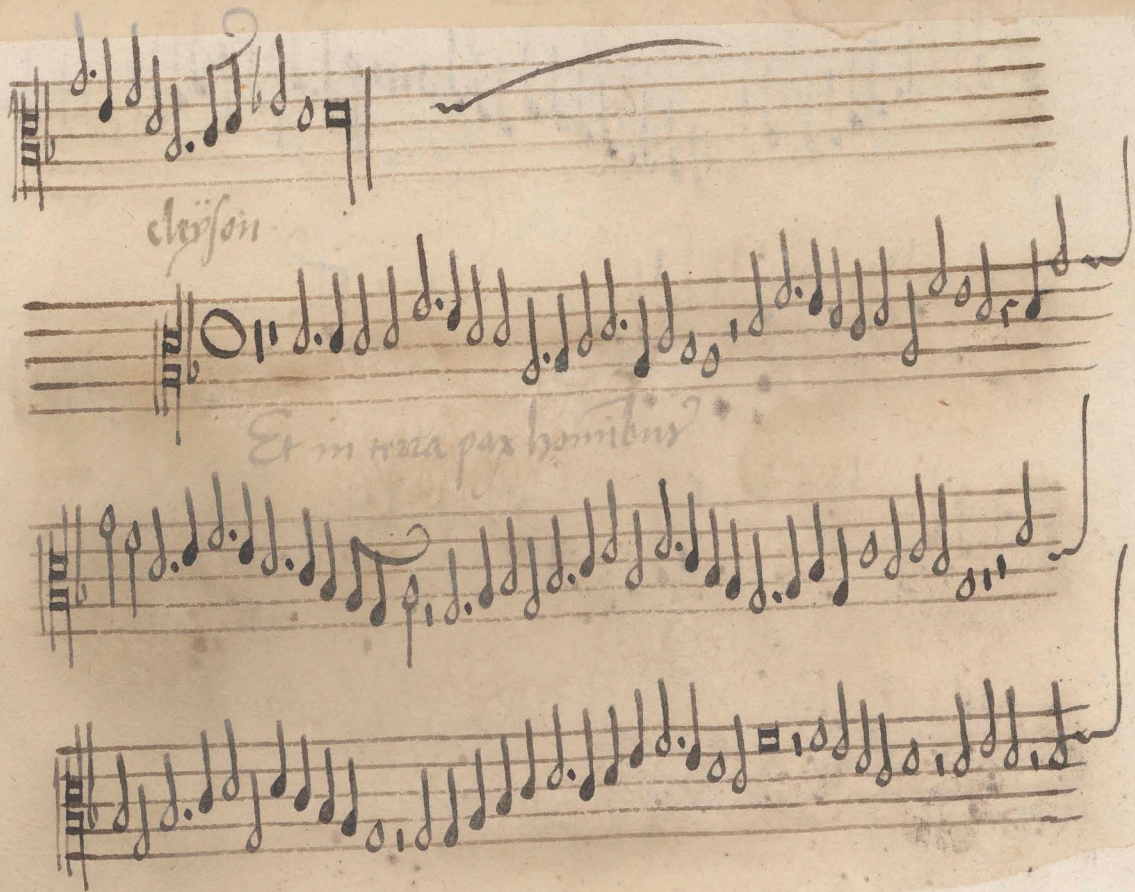 eleÿson
Et in terra pax hominibus